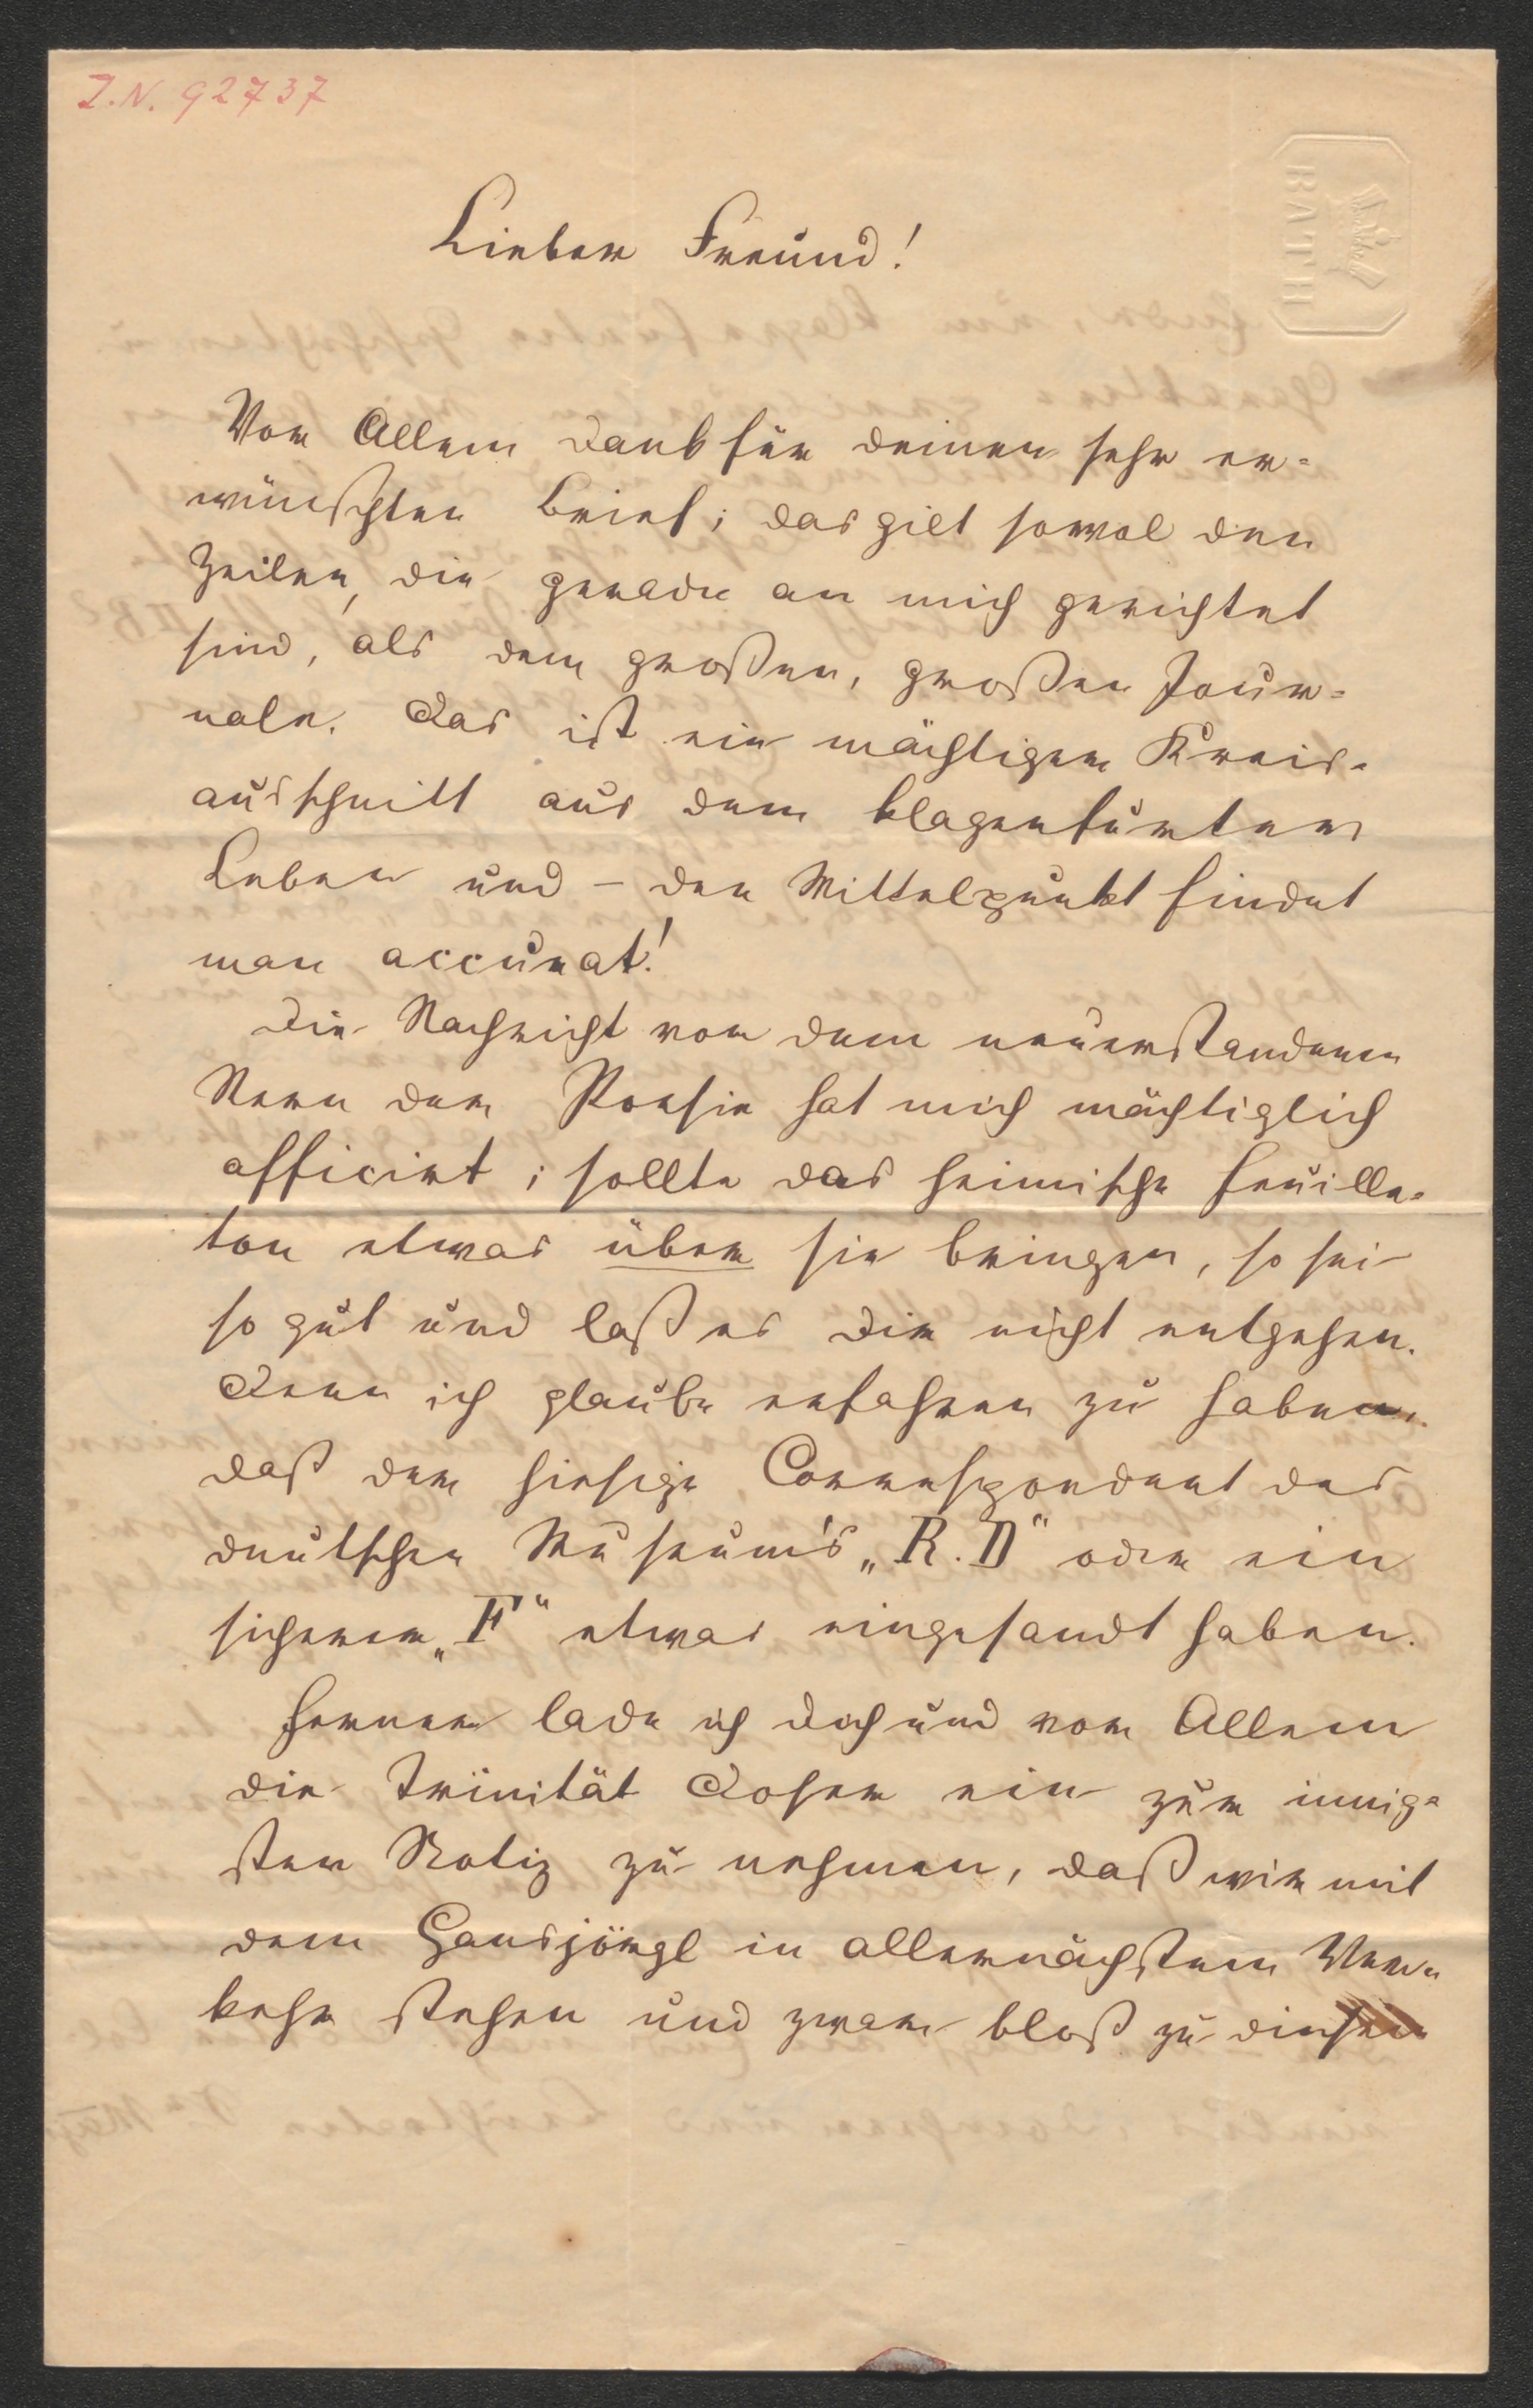 I.N. 92737
BATH
Lieber Freund!
Vor Allem Dank für deinen sehr er-
wünschten Brief; das gilt sowol den
Zeilen, die gerade an mich gerichtet
sind, als dem großen, großen Jour-
nale. Das ist ein mächtiger Kreis-
ausschnitt aus dem klagenfurter
Leben und – den Mittelpunkt findet
man accurat!
Die Nachricht von dem neuerstandenen
Stern der Poesie hat mich mächtiglich
afficirt; sollte das heimische Feuille-
ton etwas über sie bringen, so sei
so gut und laß es dir nicht entgehen.
Denn ich glaube erfahren zu haben,
daß der hiesige Correspondent des
deutschen Museum's „R. D" oder ein
sicherer „F" etwas eingesandt haben.
Ferner lade ich dich und vor Allem
die Trinität Doser ein zur innig-
sten Notiz zu nehmen, daß wir mit
dem Hansjörgl in allernächstem Ver-
kehr stehen und zwar bloß zu diesem